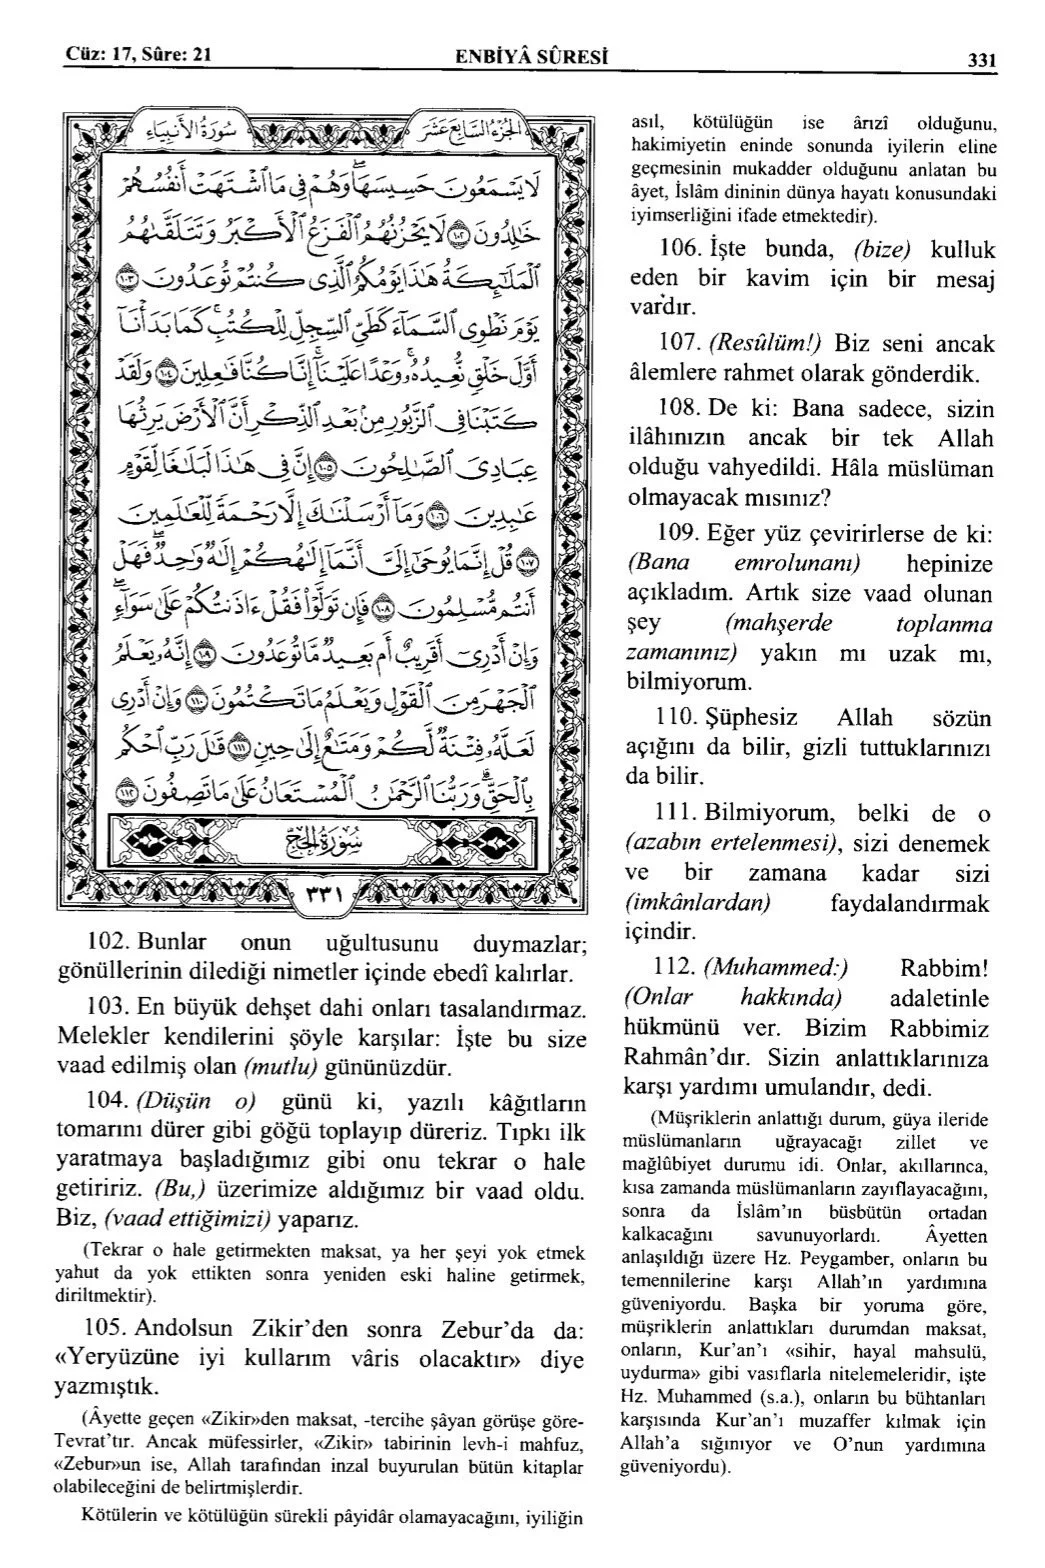 Cüz: 17, Sûre: 21
ENBİYÂ SÛRESİ
331
سُورَةُ الأَنْبِيَاءِ
الجُزْءُ السَّابِعَ عَشَرَ
لَا يَسْمَعُونَ حَسِيسَهَا وَهُمْ فِي مَا اشْتَهَتْ أَنفُسُهُمْ
خَالِدُونَ ١٠٢ لَا يَحْزُنُهُمُ الْفَزَعُ الْأَكْبَرُ وَتَتَلَقَّاهُمُ
الْمَلَائِكَةُ هَٰذَا يَوْمُكُمُ الَّذِي كُنتُمْ تُوعَدُونَ ١٠٣
يَوْمَ نَطْوِي السَّمَاءَ كَطَيِّ السِّجِلِّ لِلْكُتُبِ كَمَا بَدَأْنَا
أَوَّلَ خَلْقٍ نُّعِيدُهُ وَعْدًا عَلَيْنَا إِنَّا كُنَّا فَاعِلِينَ ١٠٤ وَلَقَدْ
كَتَبْنَا فِي الزَّبُورِ مِن بَعْدِ الذِّكْرِ أَنَّ الْأَرْضَ يَرِثُهَا
عِبَادِيَ الصَّالِحُونَ ١٠٥ إِنَّ فِي هَٰذَا لَبَلَاغًا لِّقَوْمٍ
عَابِدِينَ ١٠٦ وَمَا أَرْسَلْنَاكَ إِلَّا رَحْمَةً لِّلْعَالَمِينَ
١٠٧ قُلْ إِنَّمَا يُوحَىٰ إِلَيَّ أَنَّمَا إِلَٰهُكُمْ إِلَٰهٌ وَاحِدٌ فَهَلْ
أَنتُم مُّسْلِمُونَ ١٠٨ فَإِن تَوَلَّوْا فَقُلْ ءَاذَنتُكُمْ عَلَىٰ سَوَاءٍ
وَإِنْ أَدْرِي أَقَرِيبٌ أَم بَعِيدٌ مَّا تُوعَدُونَ ١٠٩ إِنَّهُ يَعْلَمُ
الْجَهْرَ مِنَ الْقَوْلِ وَيَعْلَمُ مَا تَكْتُمُونَ ١١٠ وَإِنْ أَدْرِي
لَعَلَّهُ فِتْنَةٌ لَّكُمْ وَمَتَاعٌ إِلَىٰ حِينٍ ١١١ قَالَ رَبِّ احْكُم
بِالْحَقِّ وَرَبُّنَا الرَّحْمَٰنُ الْمُسْتَعَانُ عَلَىٰ مَا تَصِفُونَ ١١٢
سُورَةُ الحَجِّ
٣٣١
102. Bunlar onun uğultusunu duymazlar;
gönüllerinin dilediği nimetler içinde ebedî kalırlar.
103. En büyük dehşet dahi onları tasalandırmaz.
Melekler kendilerini şöyle karşılar: İşte bu size
vaad edilmiş olan (mutlu) gününüzdür.
104. (Düşün o) günü ki, yazılı kâğıtların
tomarını dürer gibi göğü toplayıp düreriz. Tıpkı ilk
yaratmaya başladığımız gibi onu tekrar o hale
getiririz. (Bu,) üzerimize aldığımız bir vaad oldu.
Biz, (vaad ettiğimizi) yaparız.
(Tekrar o hale getirmekten maksat, ya her şeyi yok etmek
yahut da yok ettikten sonra yeniden eski haline getirmek,
diriltmektir).
105. Andolsun Zikir’den sonra Zebur’da da:
«Yeryüzüne iyi kullarım vâris olacaktır» diye
yazmıştık.
(Âyette geçen «Zikir»den maksat, -tercihe şâyan görüşe göre-
Tevrat’tır. Ancak müfessirler, «Zikir» tabirinin levh-i mahfuz,
«Zebur»un ise, Allah tarafından inzal buyurulan bütün kitaplar
olabileceğini de belirtmişlerdir.
Kötülerin ve kötülüğün sürekli pâyidâr olamayacağını, iyiliğin
asıl, kötülüğün ise ârızî olduğunu,
hakimiyetin eninde sonunda iyilerin eline
geçmesinin mukadder olduğunu anlatan bu
âyet, İslâm dininin dünya hayatı konusundaki
iyimserliğini ifade etmektedir).
106. İşte bunda, (bize) kulluk
eden bir kavim için bir mesaj
vardır.
107. (Resûlüm!) Biz seni ancak
âlemlere rahmet olarak gönderdik.
108. De ki: Bana sadece, sizin
ilâhınızın ancak bir tek Allah
olduğu vahyedildi. Hâla müslüman
olmayacak mısınız?
109. Eğer yüz çevirirlerse de ki:
(Bana emrolunanı) hepinize
açıkladım. Artık size vaad olunan
şey (mahşerde toplanma
zamanınız) yakın mı uzak mı,
bilmiyorum.
110. Şüphesiz Allah sözün
açığını da bilir, gizli tuttuklarınızı
da bilir.
111. Bilmiyorum, belki de o
(azabın ertelenmesi), sizi denemek
ve bir zamana kadar sizi
(imkânlardan) faydalandırmak
içindir.
112. (Muhammed:) Rabbim!
(Onlar hakkında) adaletinle
hükmünü ver. Bizim Rabbimiz
Rahmân’dır. Sizin anlattıklarınıza
karşı yardımı umulandır, dedi.
(Müşriklerin anlattığı durum, güya ileride
müslümanların uğrayacağı zillet ve
mağlûbiyet durumu idi. Onlar, akıllarınca,
kısa zamanda müslümanların zayıflayacağını,
sonra da İslâm’ın büsbütün ortadan
kalkacağını savunuyorlardı. Âyetten
anlaşıldığı üzere Hz. Peygamber, onların bu
temennilerine karşı Allah’ın yardımına
güveniyordu. Başka bir yoruma göre,
müşriklerin anlattıkları durumdan maksat,
onların, Kur’an’ı «sihir, hayal mahsulü,
uydurma» gibi vasıflarla nitelemeleridir, işte
Hz. Muhammed (s.a.), onların bu bühtanları
karşısında Kur’an’ı muzaffer kılmak için
Allah’a sığınıyor ve O’nun yardımına
güveniyordu).